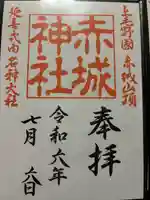 上毛野國 赤城山頂
奉拝
赤城
神社
令和六年
七月 六日
延喜式内 名神大社